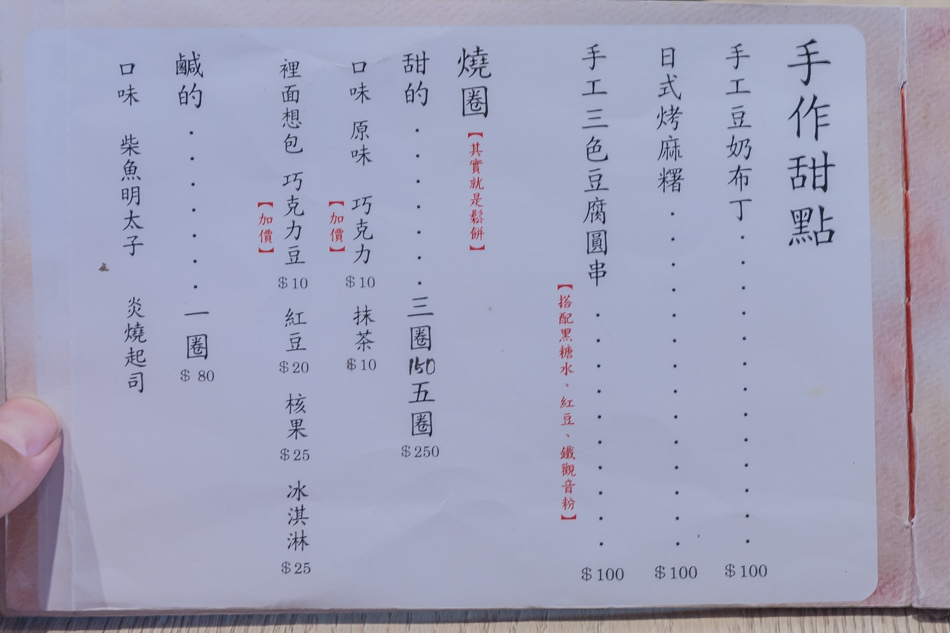 手作甜點
手工豆奶布丁 . . . . . . . . . . . . . $100
日式烤麻糬 . . . . . . . . . . . . . . $100
手工三色豆腐圓串 . . . . . . . . . . $100
【搭配黑糖水、紅豆、鐵觀音粉】
燒圈【其實就是鬆餅】
甜的 . . . . . . . 三圈150 五圈$250
口味 原味 巧克力$10 抹茶$10
【加價】
裡面想包 巧克力豆$10 紅豆$20 核果$25 冰淇淋$25
【加價】
鹹的 . . . . . . . 一圈$80
口味 柴魚明太子 炎燒起司